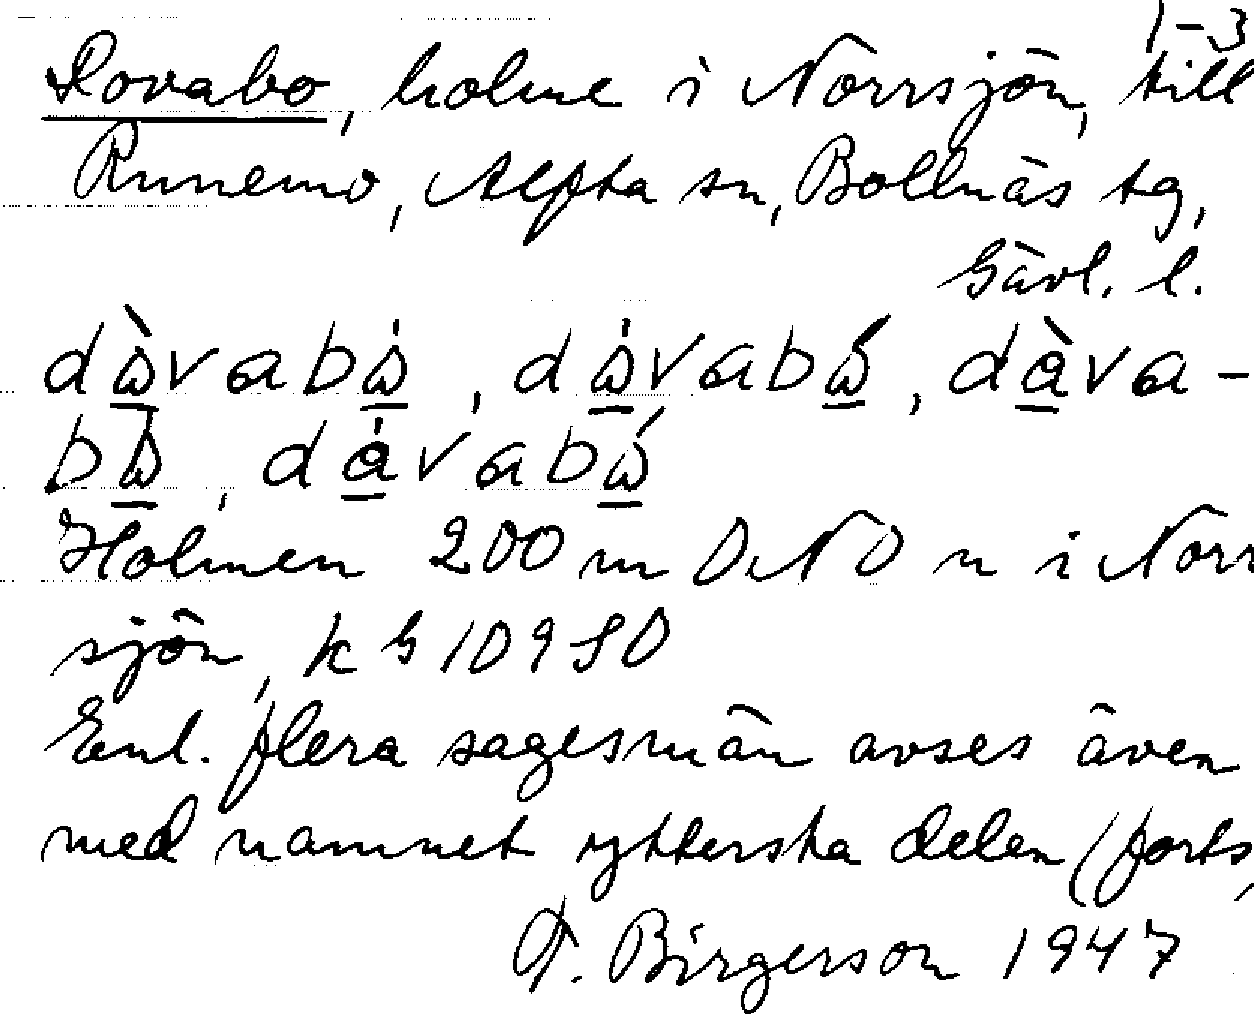 1-3
Dovabo, holme i Norrsjön, till
Runemo, Alfta sn, Bollnäs tg,
Gävl. l.
Holmen 200 m ONO n i Norr
sjön, k G 10980
Enl. flera sagesmän avses även
med namnet yttersta delen (forts,
F. Birgerson 1947